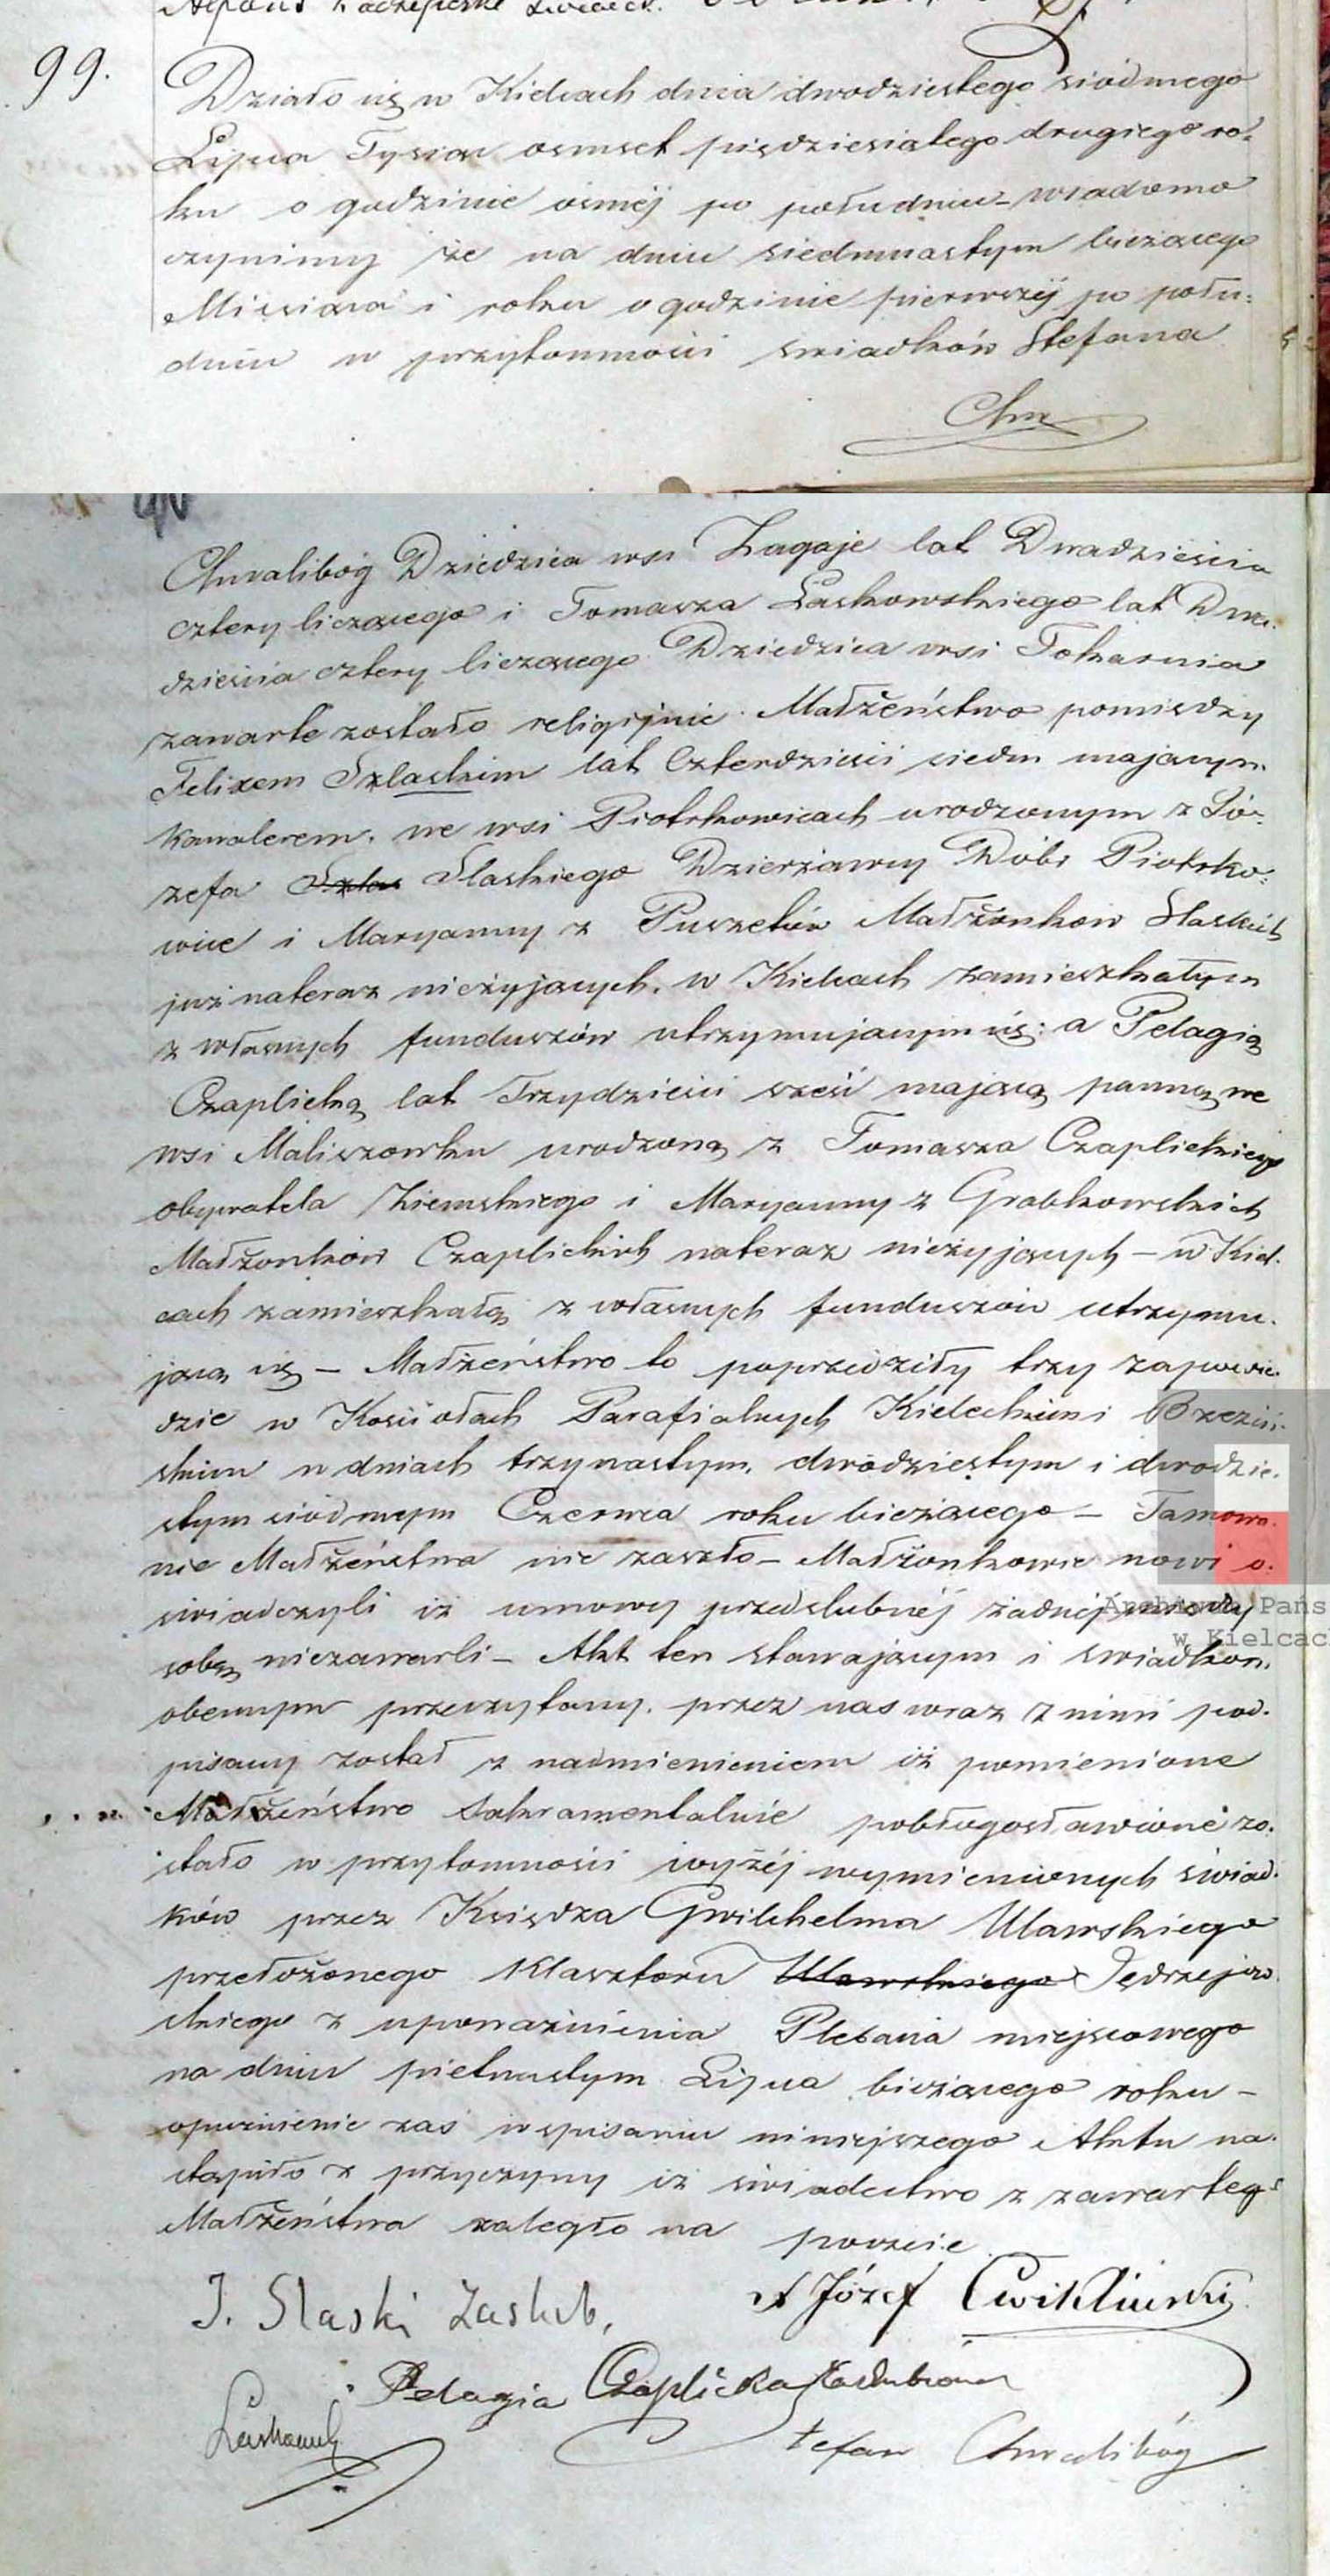 99.
Działo się w Kielcach dnia dwodziestego siódmego
Lipca Tysiąc osmset pięcdziesiątego drugiego ro-
ku o godzinie osmej po południu – wiadomo
czynimy że na dniu siedmnastym bieżącego
Miesiąca i roku o godzinie pierwszéj po połu-
dniu w przytomności świadków Stefana
Chw
Chwalibóg Dziedzica wsi Zagaje lat Dwadzieścia
cztery liczącego i Tomasza Laskowskiego lat Dwa-
dzieścia cztery liczącego Dziedzica wsi Tokarnia
zawarte zostało religijnie Małżeństwo pomiędzy
Felixem Szlaskim lat Czterdzieści siedm mającym
kawalerem, we wsi Piotrkowicach urodzonym z Jó-
zefa Szlas Slaskiego Dzierżawcy Dóbr Piotrko-
wice i Maryanny z Puszetów Małżonków Slaskich
już nateraz nieżyjących, w Kielcach zamieszkałym
z własnych funduszów utrzymującym się: a Pelagią
Czaplicką lat Trzydzieści sześć mającą panną, we
wsi Maliszowku urodzoną z Tomasza Czaplickiego
obywatela Ziemskiego i Maryanny z Grabkowskich
Małżonków Czaplickich nateraz nieżyjących – w Kiel-
cach zamieszkałą z własnych funduszów utrzymu-
jącą się – Małżeństwo to poprzedziły trzy zapowie-
dzie w Kościołach Parafialnych Kieleckim i Brzeziń-
skim w dniach trzynastym, dwódziestym i dwodzie-
stym siódmym Czerwca roku bieżącego – Tamowa-
nie Małżeństwa nie zaszło – Małżonkowie nowi o-
świadczyli iż umowy przedślubnéj żadnéj między
sobą niezawarli – Akt ten stawającym i świadkom
obecnym przeczytany, przez nas wraz z nimi pod-
pisany został z nadmienieniem iż pomienione
Małżeństwo Sakramentalnie pobłogosławione zo-
stało w przytomności wyżéj wymienionych świad-
ków przez Księdza Gwilchelma Ulawskiego
przełożonego Klasztoru Ulawskiego Jędrzejow-
skiego z upoważnienia Plebana miejscowego
na dniu pietnastym Lipca bieżącego roku –
opuźnienie zaś w spisaniu niniejszego Aktu na-
stąpiło z przyczyny iż świadectwo z zawartego
Małżeństwa zaległo na poczcie
X Józef Cwikliński
J. Slaski Zaslub,
Pelagia Czaplicka Zaslubiona
Laskowski
Stefan Chwalibóg
Archiwum Pańs
w Kielcach